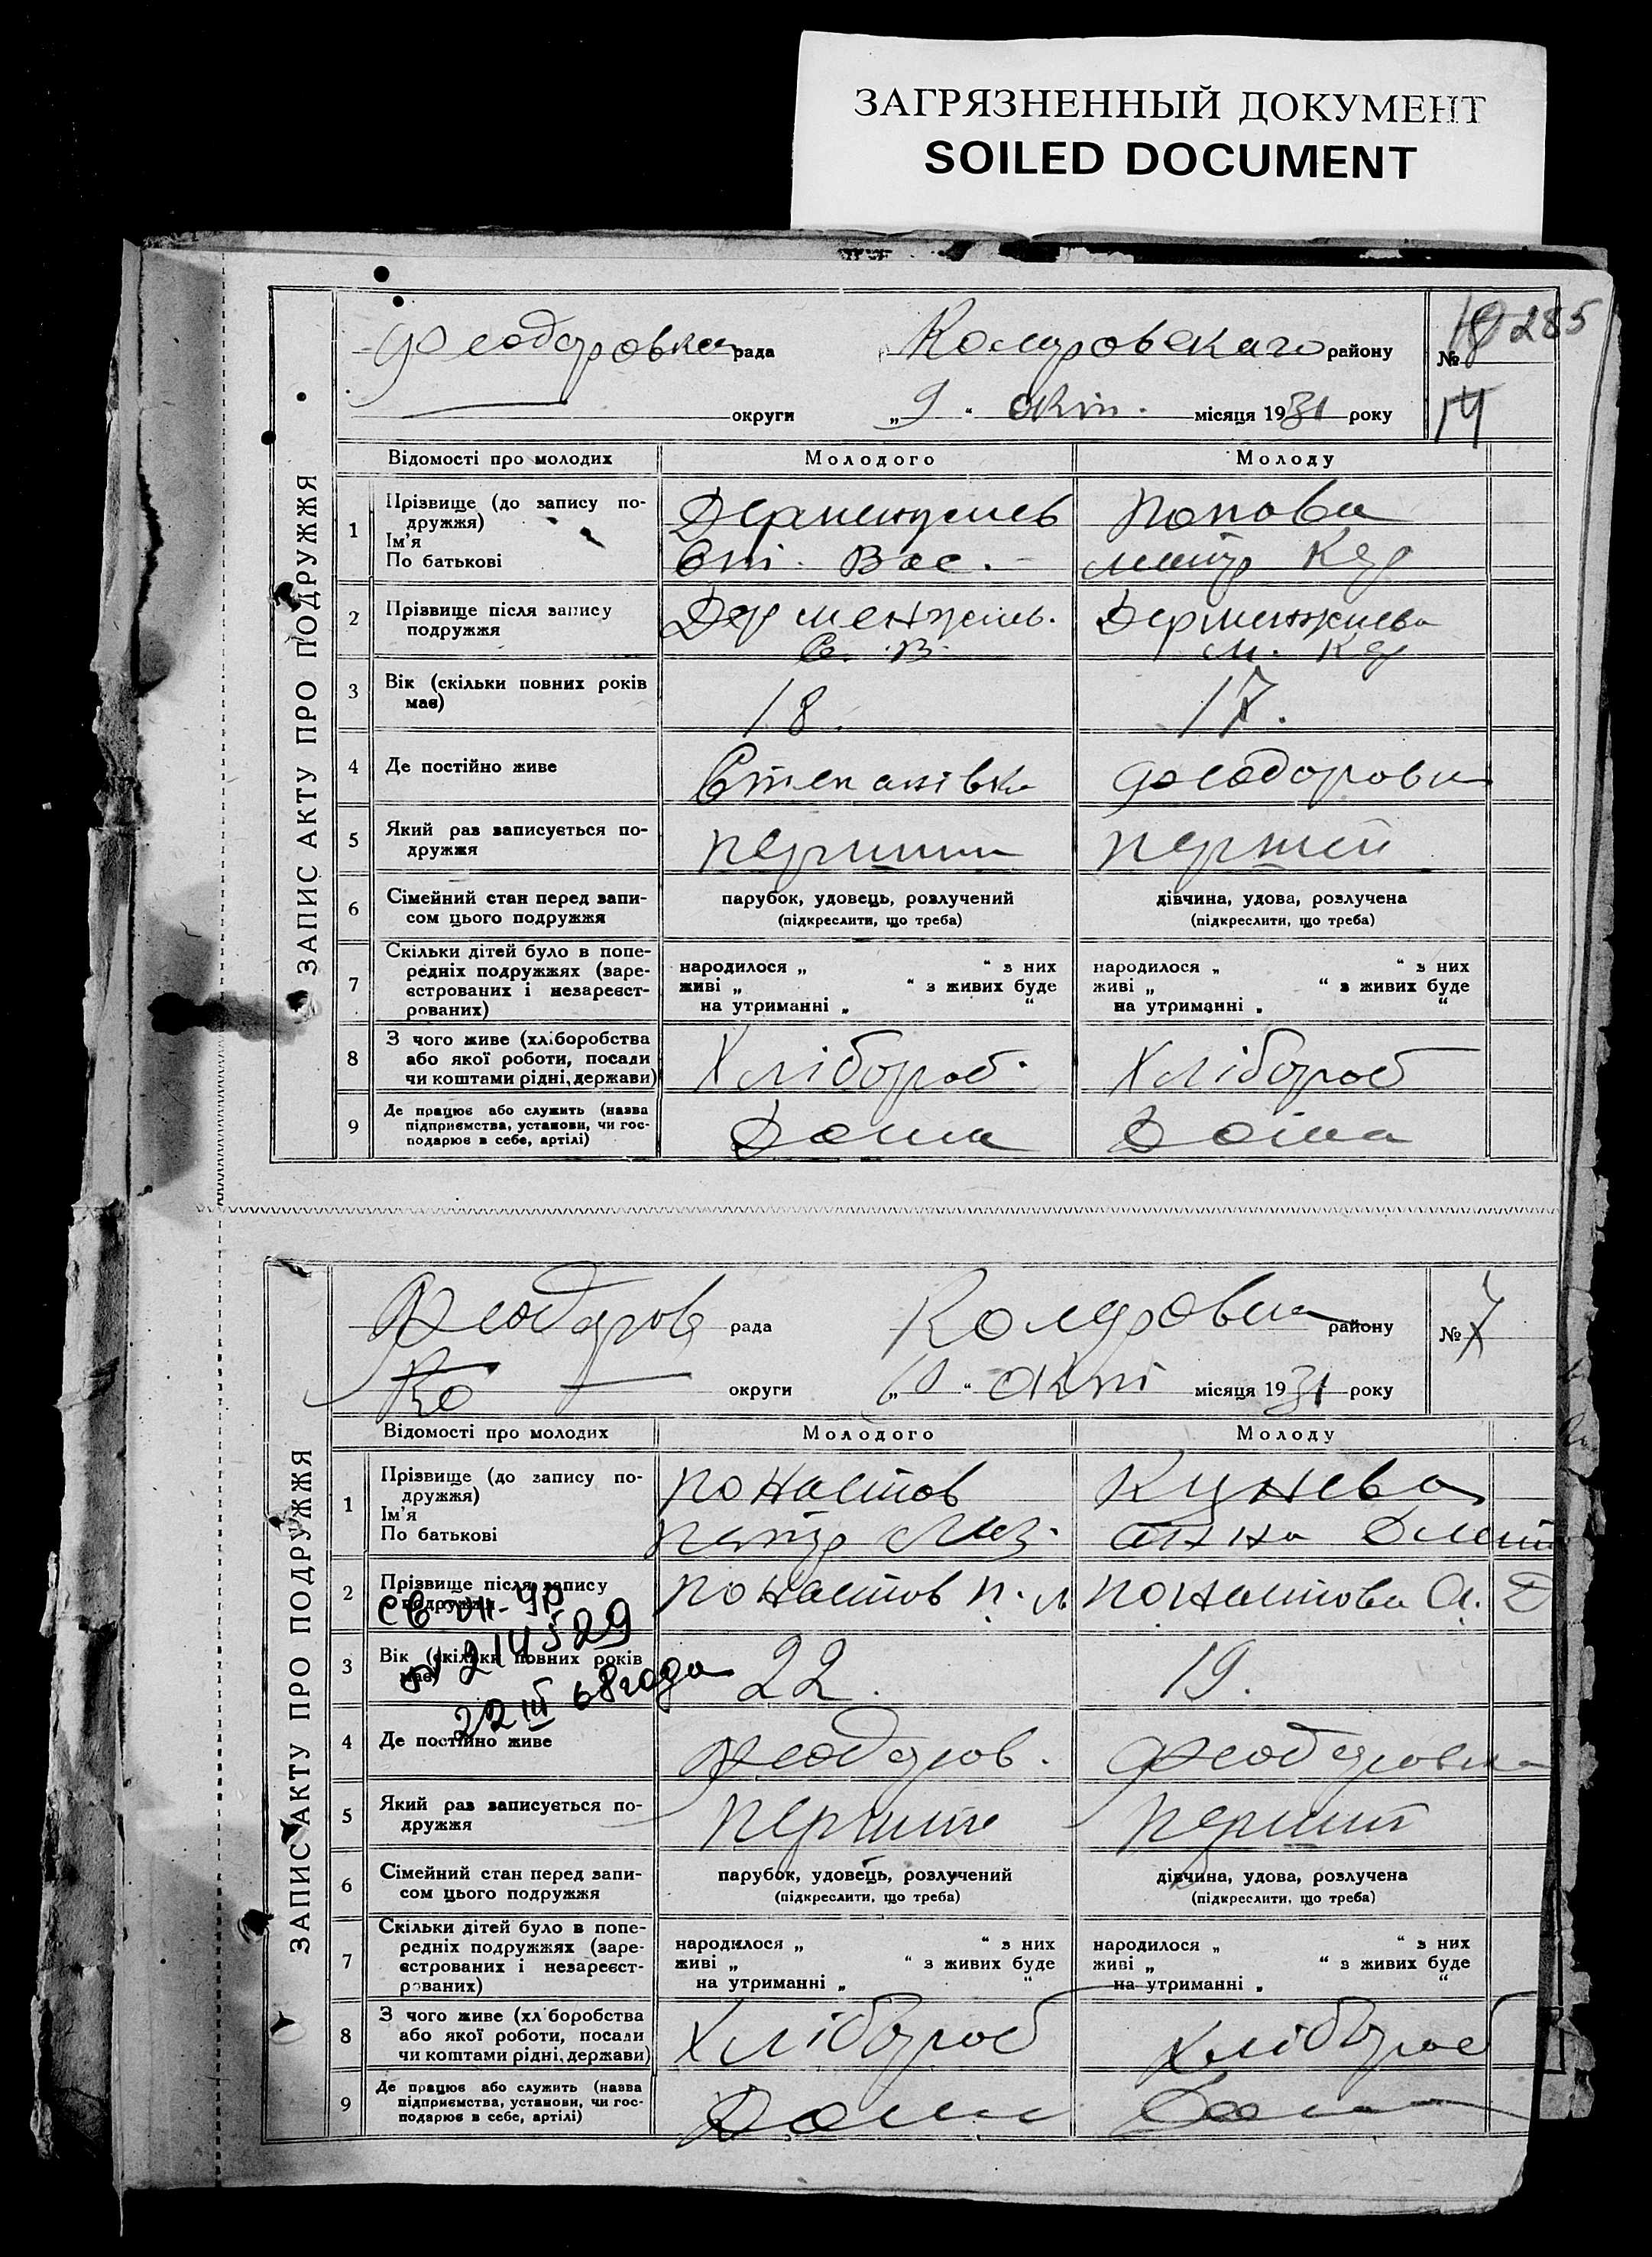 ЗАГРЯЗНЕННЫЙ ДОКУМЕНТ
SOILED DOCUMENT
285
ЗАПИС АКТУ ПРО ПОДРУЖЖЯ
Феодоровка рада Коларовскаго району №
округи „9“ окт. місяця 1931 року 14
Відомості про молодих Молодого Молоду
1 Прізвище (до запису по-
дружжя)
Ім'я
По батькові
Дерменжиев Попова
Ст. Вас.
2 Прізвище після запису
подружжя
Дерменжиев. Дерменжиева
С. В. М. Кар
3 Вік (скільки повних років
має)
18. 17.
4 Де постійно живе Степанівка Феодоровка
5 Який раз записується по-
дружжя
перший перший
6 Сімейний стан перед запи-
сом цього подружжя
парубок, удовець, розлучений дівчина, удова, розлучена
(підкреслити, що треба) (підкреслити, що треба)
7 Скільки дітей було в попе-
редніх подружжях (заре-
єстрованих і незареєст-
рованих)
народилося „ “ з них народилося „ “ з них
живі „ “ з живих буде живі „ “ з живих буде
на утриманні „ “ на утриманні „ “
8 З чого живе (хліборобства
або якої роботи, посади
чи коштами рідні, держави)
Хлібороб Хлібороб
9 Де працює або служить (назва
підприємства, установи, чи гос-
подарює в себе, артілі)
Дома Дома
ЗАПИС АКТУ ПРО ПОДРУЖЖЯ
Феодоров рада Коларовка району № 7
ка округи „10“ окт місяця 1931 року
Відомості про молодих Молодого Молоду
1 Прізвище (до запису по-
дружжя)
Ім'я
По батькові
Кунева
Петр Анна Дмит
2 Прізвище після запису
подружжя
СВ VII-УР
№ 214529
22 III 68 года
3 Вік (скільки повних років
має)
22. 19.
4 Де постійно живе Феодоров. Феодоровка
5 Який раз записується по-
дружжя
перший перший
6 Сімейний стан перед запи-
сом цього подружжя
парубок, удовець, розлучений дівчина, удова, розлучена
(підкреслити, що треба) (підкреслити, що треба)
7 Скільки дітей було в попе-
редніх подружжях (заре-
єстрованих і незареєст-
рованих)
народилося „ “ з них народилося „ “ з них
живі „ “ з живих буде живі „ “ з живих буде
на утриманні „ “ на утриманні „ “
8 З чого живе (хліборобства
або якої роботи, посади
чи коштами рідні, держави)
Хлібороб Хлібороб
9 Де працює або служить (назва
підприємства, установи, чи гос-
подарює в себе, артілі)
Дома Дома